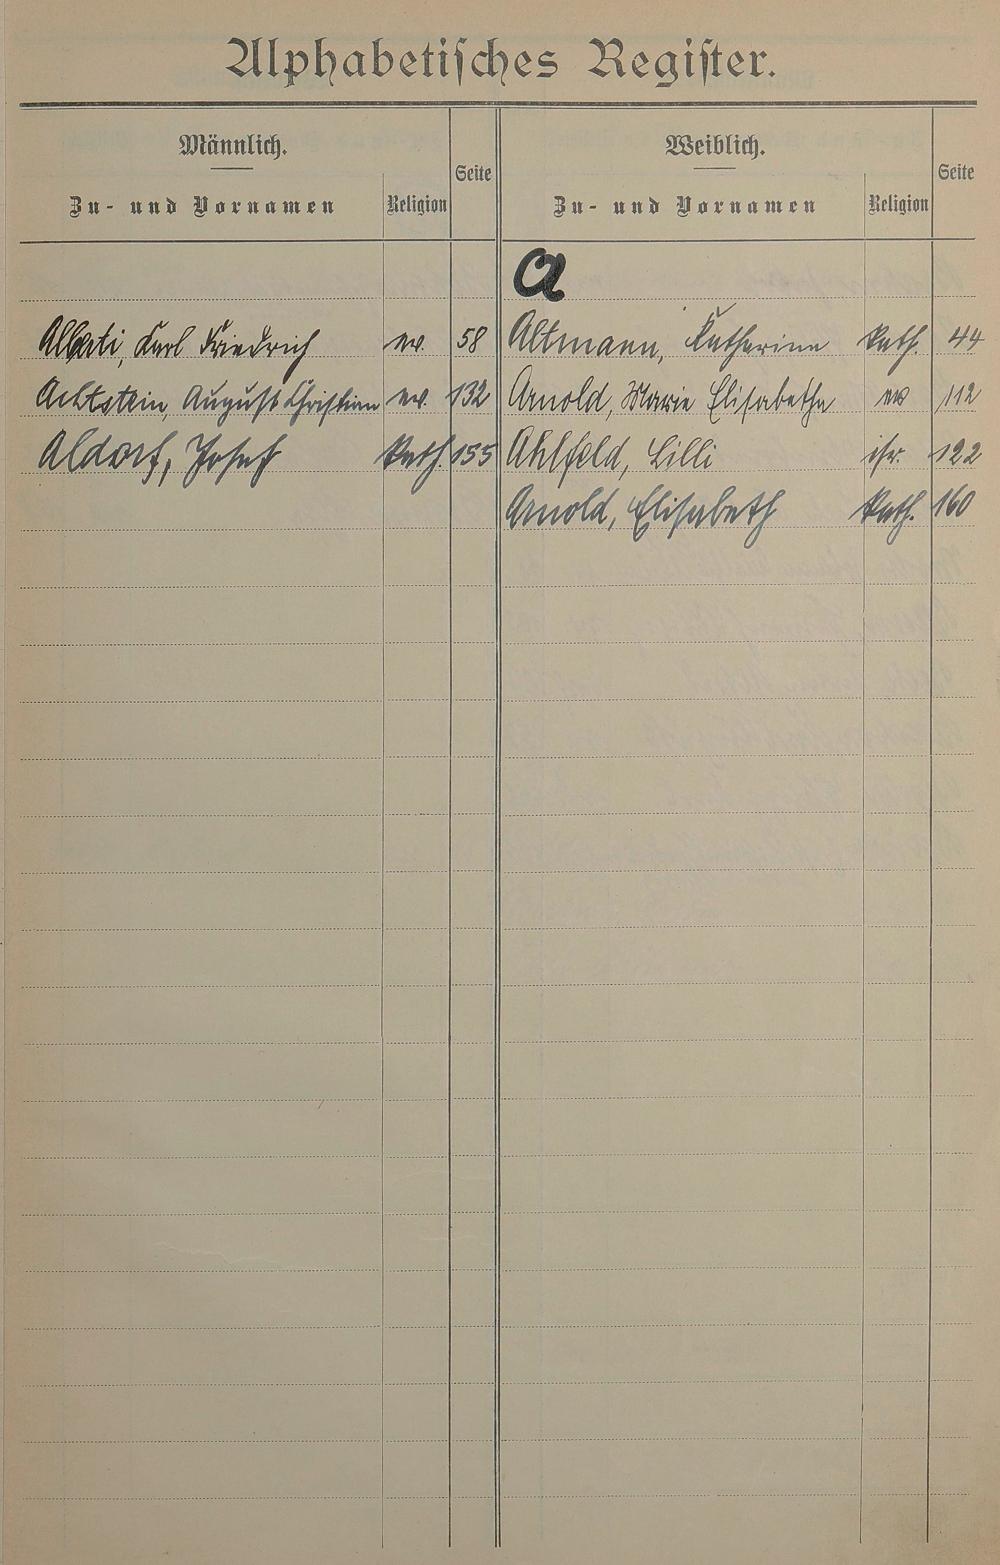 Alphabetisches Register.
Männlich. Seite Weiblich. Seite
Zu- und Vornamen Religion Zu- und Vornamen Religion
a
Alberti, Karl Friedrich ev. 58 Altmann, Katharina kath. 44
Achtstein, August Christian ev. 132 Arnold, Marie Elisabetha ev 112
Aldorf, Josef kath. 155 Ahlfeld, Lilli isr. 122
Arnold, Elisabeth kath. 160